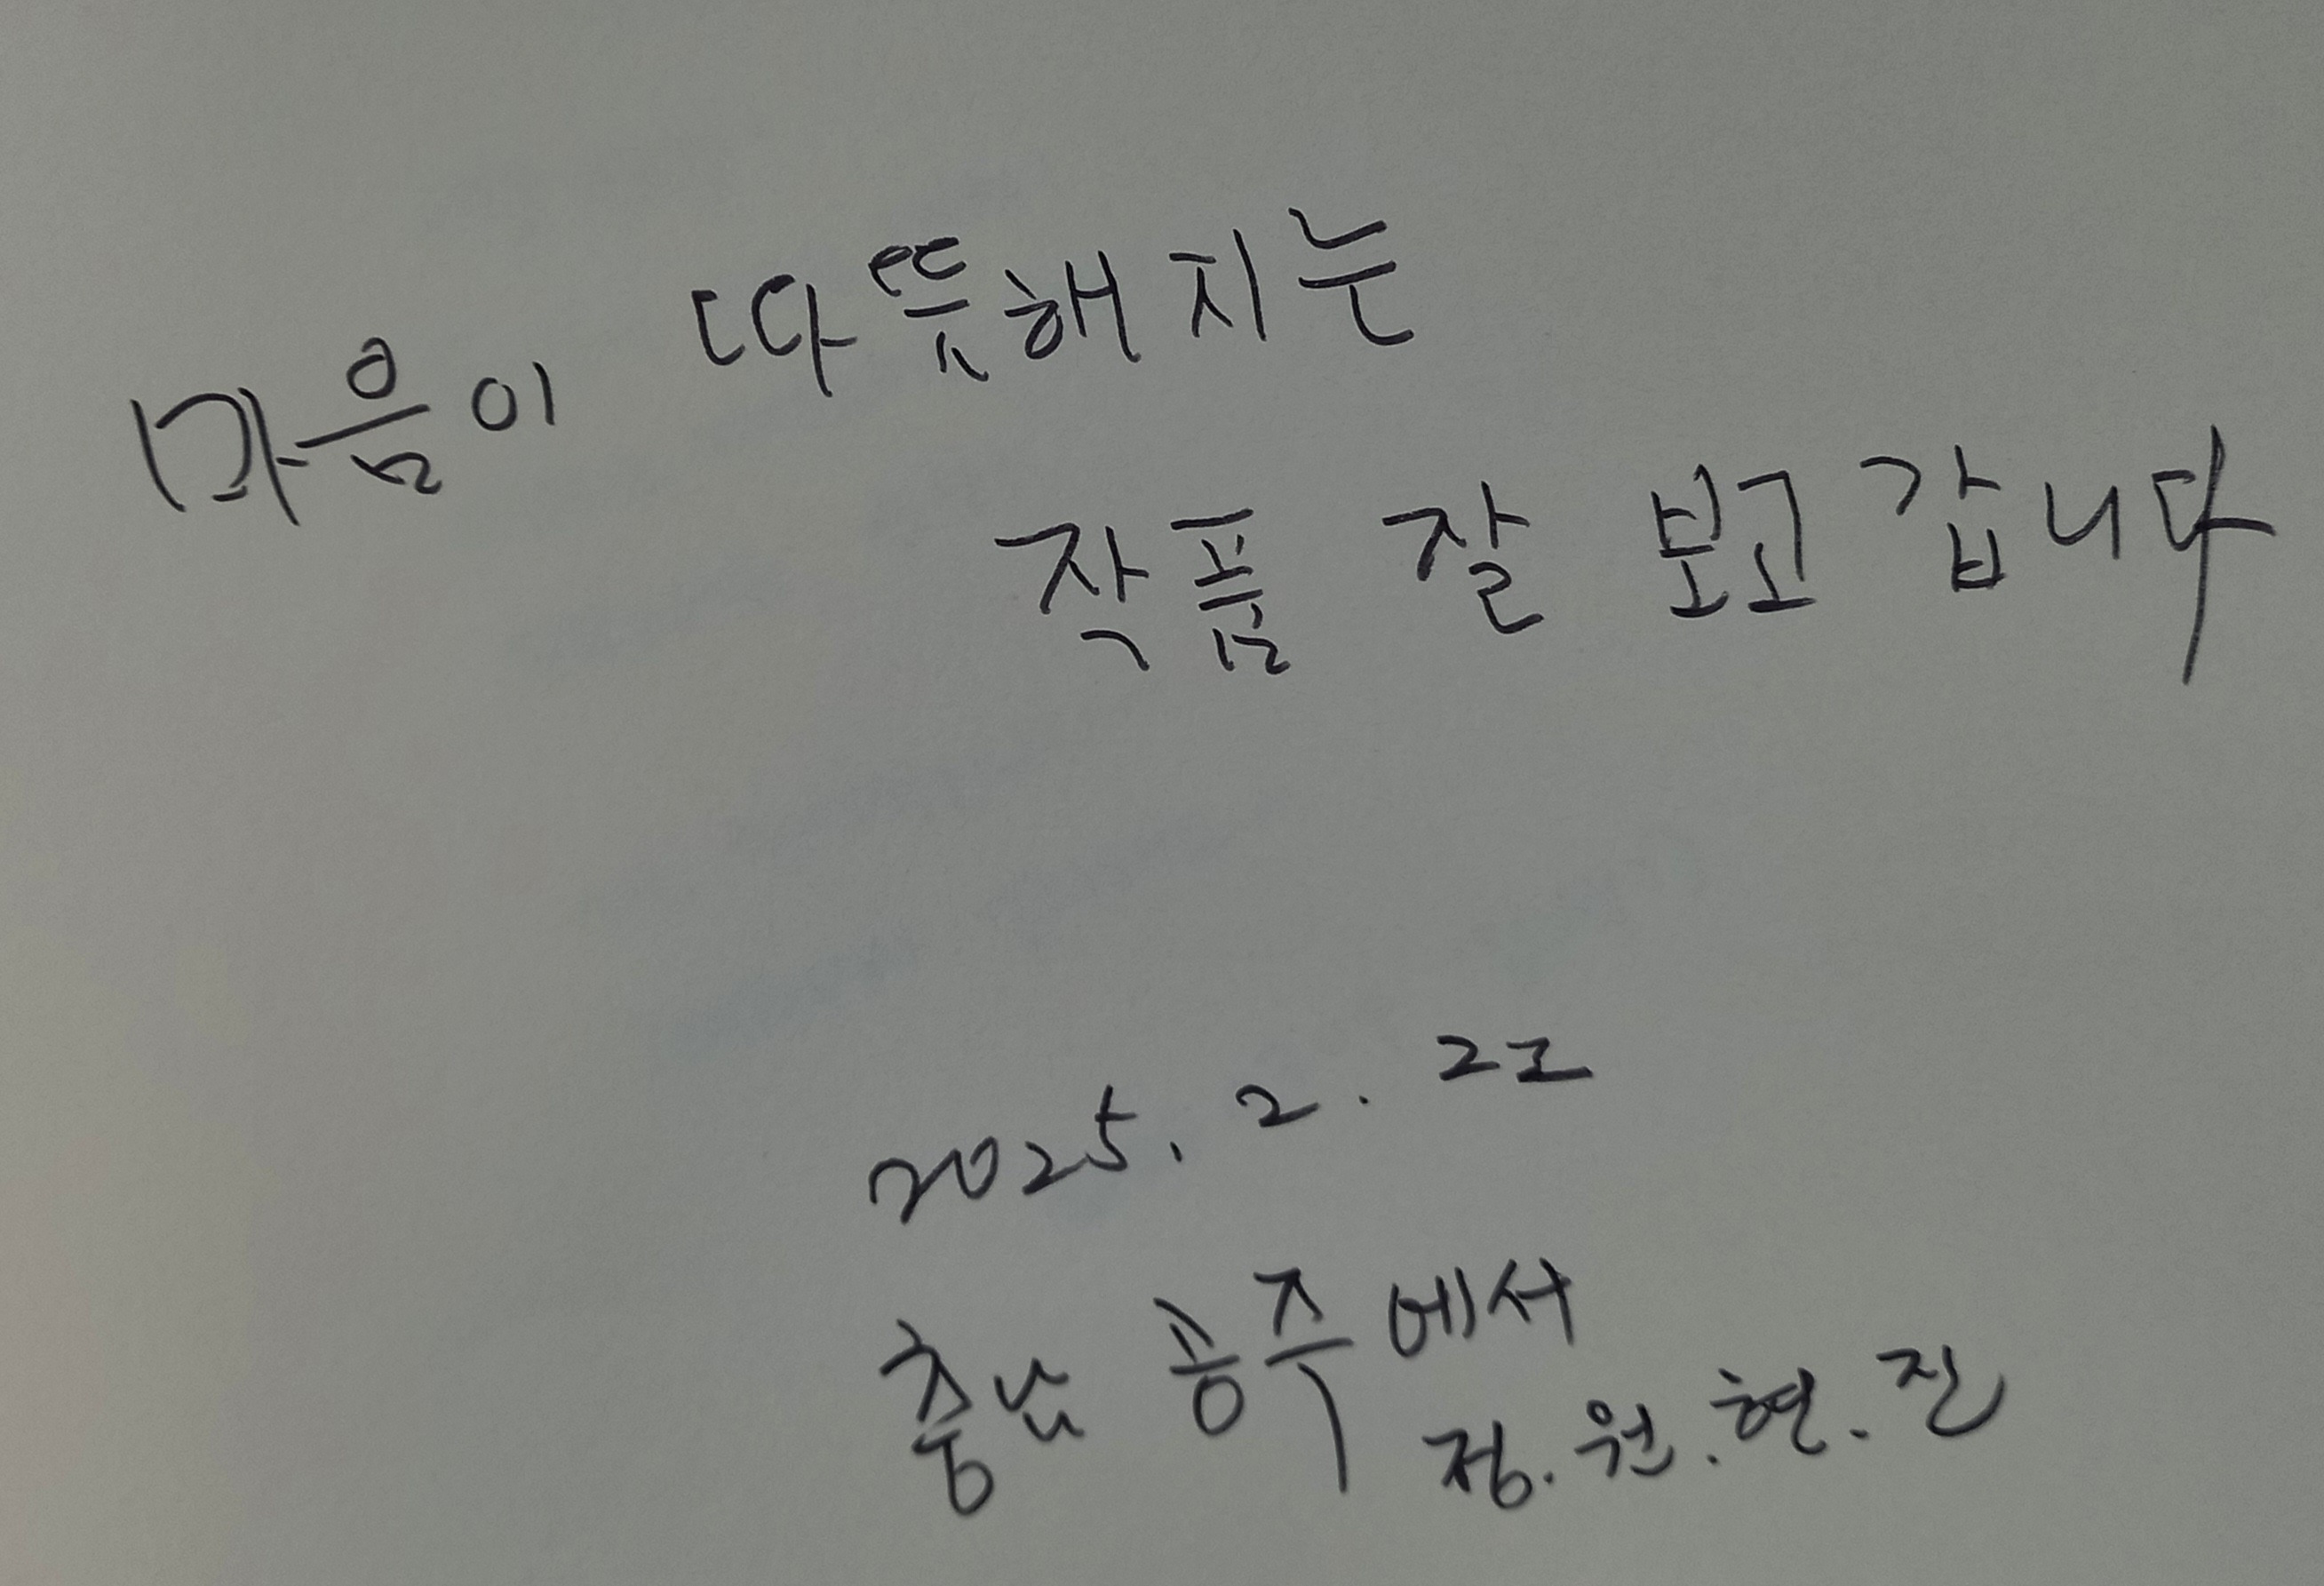 마음이 따뜻해지는
작품 잘 보고 갑니다
2025. 2. 22
충남 공주에서
정.원.현.진